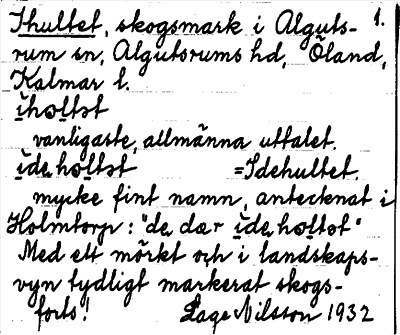 Ihultet, skogsmark i Alguts- 1.
rum sn, Algutsrums hd, Öland,
Kalmar l.
ìholtət
vanligaste, allmänna uttalet.
ìdeholtət =Idehultet.
mycke fint namn, antecknat i
Holmtorp: "de dær ìdeholtət"
Med ett mörkt och i landskaps-
vyn tydligt markerat skogs-
forts! Lage Nilsson 1932